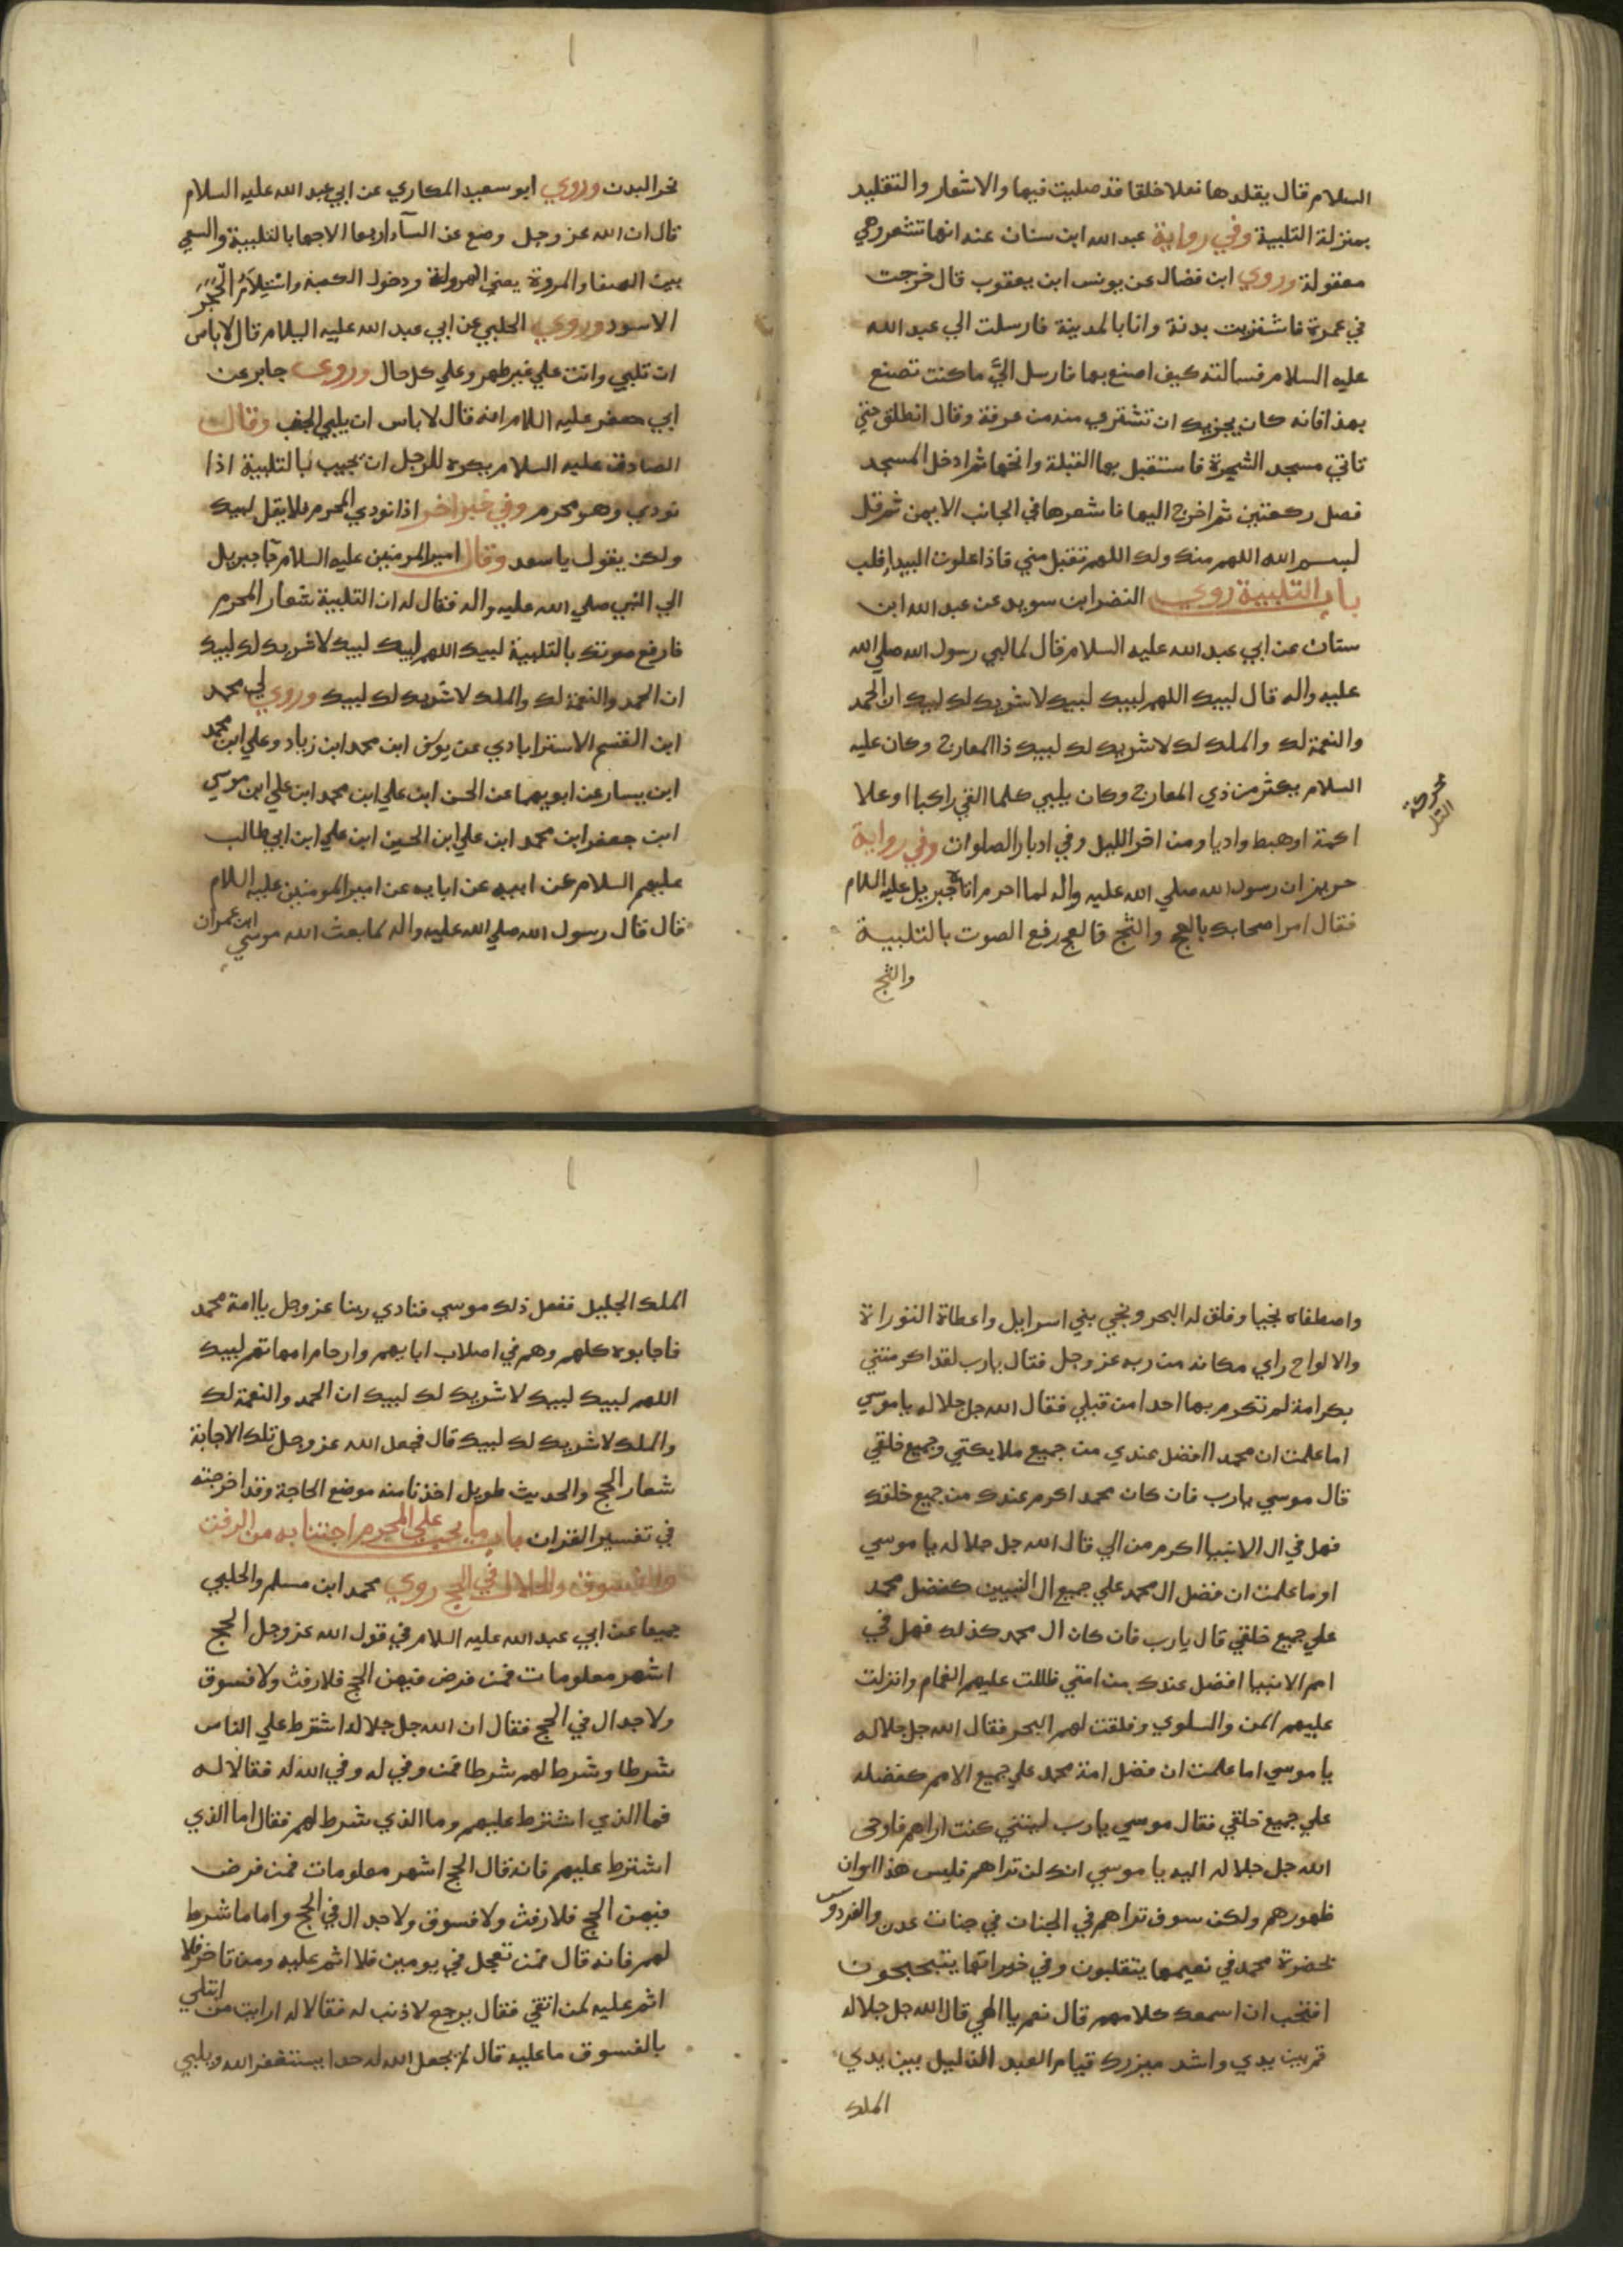 السلام قال يقلدها نعلا خلقا قد صليت فيها والاشعار والتقليد
بمنزلة التلبية وفي رواية عبد الله ابن سنان عند انها تشعر وهي
معقولة وروي ابن فضال عن يونس ابن يعقوب قال خرجت
في عمرة فاشتريت بدنة وانا بالمدينة فارسلت الي عبد الله
عليه السلام فسالته كيف اصنع بها فارسل اليّ ما كنت تصنع
بهذا فانه كان يجزيك ان تشتري منه من عرفة وقال انطلق حتي
تاتي مسجد الشجرة فاستقبل بها القبلة وانخها ثم ادخل المسجد
فصل ركعتين ثم اخرج اليها فاشعرها في الجانب الايمن ثم قل
بسم الله اللهم منك ولك اللهم تقبل مني فاذا علوت البيداء فلب
باب التلبية روي النضر ابن سويد عن عبد الله ابن
سنان عن ابي عبد الله عليه السلام قال لما لبي رسول الله صلي الله
عليه واله قال لبيك اللهم لبيك لبيك لا شريك لك لبيك ان الحمد
والنعمة لك والملك لك لا شريك لك لبيك ذا المعارج وكان عليه
السلام يكثر من ذي المعارج وكان يلبي كلما القي راكبا او علا
اكمة او هبط واديا ومن اخر الليل وفي ادبار الصلوات وفي رواية
حريز ان رسول الله صلي الله عليه واله لما احرم اتاه جبريل عليه السلام
فقال امر اصحابك بالعج والثج فالعج رفع الصوت بالتلبية
والثج
نحر البدن وروي ابو سعيد المكاري عن ابي عبد الله عليه السلام
قال ان الله عز وجل وضع عن النسآء اربعا الاجهار بالتلبية والسعي
بين الصفا والمروة يعني الهرولة ودخول الكعبة واستِلَامُ الحَجَر
الاسود وروي الحلبي عن ابي عبد الله عليه السلام قال لا باس
ان تلبي وانت علي غير طهر وعلي كل حال وروي جابر عن
ابي جعفر عليه السلام انه قال لا باس ان يلبي الجنب وقال
الصادق عليه السلام يكره للرجل ان يجيب بالتلبية اذا
نودي وهو محرم وفي خبر اخر اذا نودي المحرم فلا يقل لبيك
ولكن يقول يا سعد وقال امير المومنين عليه السلام جآ جبريل
الي النبي صلي الله عليه واله فقال له ان التلبية شعار المحرم
فارفع صوتك بالتلبية لبيك اللهم لبيك لبيك لا شريك لك لبيك
ان الحمد والنعمة لك والملك لا شريك لك لبيك وروي لي محمد
ابن القسم الاسترابادي عن يوسف ابن محمد ابن زياد وعلي ابن محمد
ابن يسار عن ابويهما عن الحسن ابن علي ابن محمد ابن علي ابن موسي
ابن جعفر ابن محمد ابن علي ابن الحسين ابن علي ابن ابي طالب
عليهم السلام عن ابيه عن ابايه عن امير المومنين عليه السلام
قال قال رسول الله صلي الله عليه واله لما بعث الله موسي ابن عمران
واصطفاه نجيا وفلق له البحر ونجي بني اسرايل واعطاه التوراة
والالواح راي مكانه من ربه عز وجل فقال يا رب لقد اكرمتني
بكرامة لم تكرم بها احدا من قبلي فقال الله جل جلاله يا موسي
اما علمت ان محمدا افضل عندي من جميع ملايكتي وجميع خلقي
قال موسي يا رب فان كان محمد اكرم عندك من جميع خلقك
فهل في ال الانبيا اكرم من الي قال الله جل جلاله يا موسي
اوما علمت ان فضل ال محمد علي جميع ال النبيين كفضل محمد
علي جميع خلقي قال يا رب فان كان ال محمد كذلك فهل في
امم الانبيا افضل عندك من امتي ظللت عليهم الغمام وانزلت
عليهم المن والسلوي وفلقت لهم البحر فقال الله جل جلاله
يا موسي اما علمت ان فضل امة محمد علي جميع الامم كفضله
علي جميع خلقي فقال موسي يا رب ليتني كنت اراهم فاوحى
الله جل جلاله اليه يا موسي انك لن تراهم فليس هذا اوان
ظهورهم ولكن سوف تراهم في الجنان في جنات عدن والفردوس
بحضرة محمد في نعيمها يتقلبون وفي خيراتها يتبحبحون
افتحب ان اسمعك كلامهم قال نعم يا الهي قال الله جل جلاله
قم بين يدي واشد ميزرك قيام العبد الذليل بين يدي
الملك
الملك الجليل ففعل ذلك موسي فنادي ربنا عز وجل يا امة محمد
فاجابوه كلهم وهم في اصلاب ابايهم وارحام امهاتهم لبيك
اللهم لبيك لبيك لا شريك لك لبيك ان الحمد والنعمة لك
والملك لا شريك لك لبيك قال فجعل الله عز وجل تلك الاجابة
شعار الحج والحديث طويل اخذنا منه موضع الحاجة وقد اخرجته
في تفسير القران باب ما يجب علي المحرم اجتنابه من الرفث
والفسوق والجدال في الحج روي محمد ابن مسلم والحلبي
جميعا عن ابي عبد الله عليه السلام في قول الله عز وجل الحج
اشهر معلومات فمن فرض فيهن الحج فلا رفث ولا فسوق
ولا جدال في الحج فقال ان الله جل جلاله اشترط علي الناس
شرطا وشرط لهم شرطا فمن وفي له وفي الله له فقالا له
فما الذي اشترط عليهم وما الذي شرط لهم فقال اما الذي
اشترط عليهم فانه قال الحج اشهر معلومات فمن فرض
فيهن الحج فلا رفث ولا فسوق ولا جدال في الحج واما ما شرط
لهم فانه قال فمن تعجل في يومين فلا اثم عليه ومن تاخر فلا
اثم عليه لمن اتقي فقال يرجع لا ذنب له فقالا له ارايت من ابتلي
بالفسوق ما عليه قال لم يجعل الله له حدا يستغفر الله ويلبي